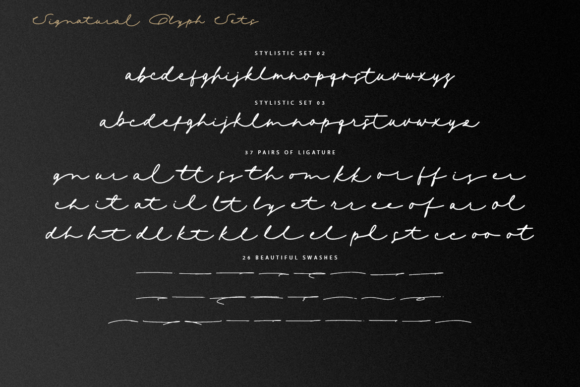 Signatural Glyph Sets
STYLISTIC SET 02
abcdefghijklmnopqrstuvwxyz
STYLISTIC SET 03
abcdefghijklmnopqrstuvwxyz
37 PAIRS OF LIGATURE
gn ur al tt ss th om kk or ff is er
ch it at il lt ly et rr ee of ar ol
dh ht dl kt kl ll el pl st cc oo ot
26 BEAUTIFUL SWASHES